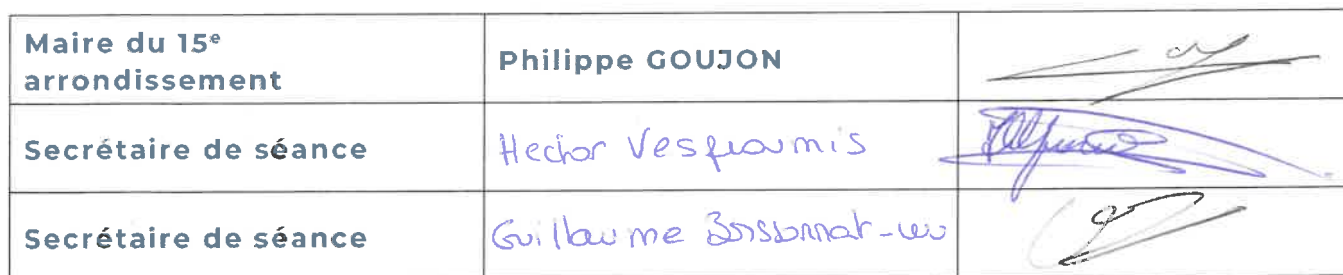 Maire du 15e
arrondissement
Philippe GOUJON
Secrétaire de séance
Hector
Secrétaire de séance
Guillaume